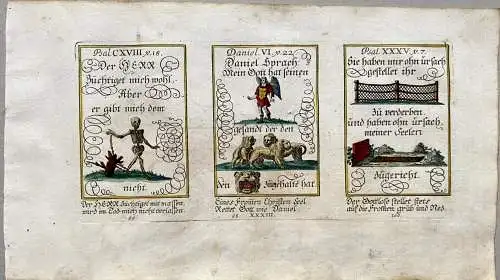 Psal CXVIII v. 18.
Der HERR
züchtiget mich wohl
Aber
er gibt mich dem
nicht.
Der HERR züchtiget mit massen,
wird im Tod mich nicht verlassen
Daniel. VI. v. 22.
Daniel Sprach
Mein Gott hat seinen
gesandt der den
den
zugehalte hat.
Eines Frommen Christen Seel
Rettet Gott wie Daniel
XXXIII.
Psal. XXXV. v. 7.
Sie haben mir ohn ursach
gestellet ihr
zu verderben
und haben ohn ursach
meiner Seelen
zugericht.
Der Gottlose stellet stets
auf die Frommen grub und Netz